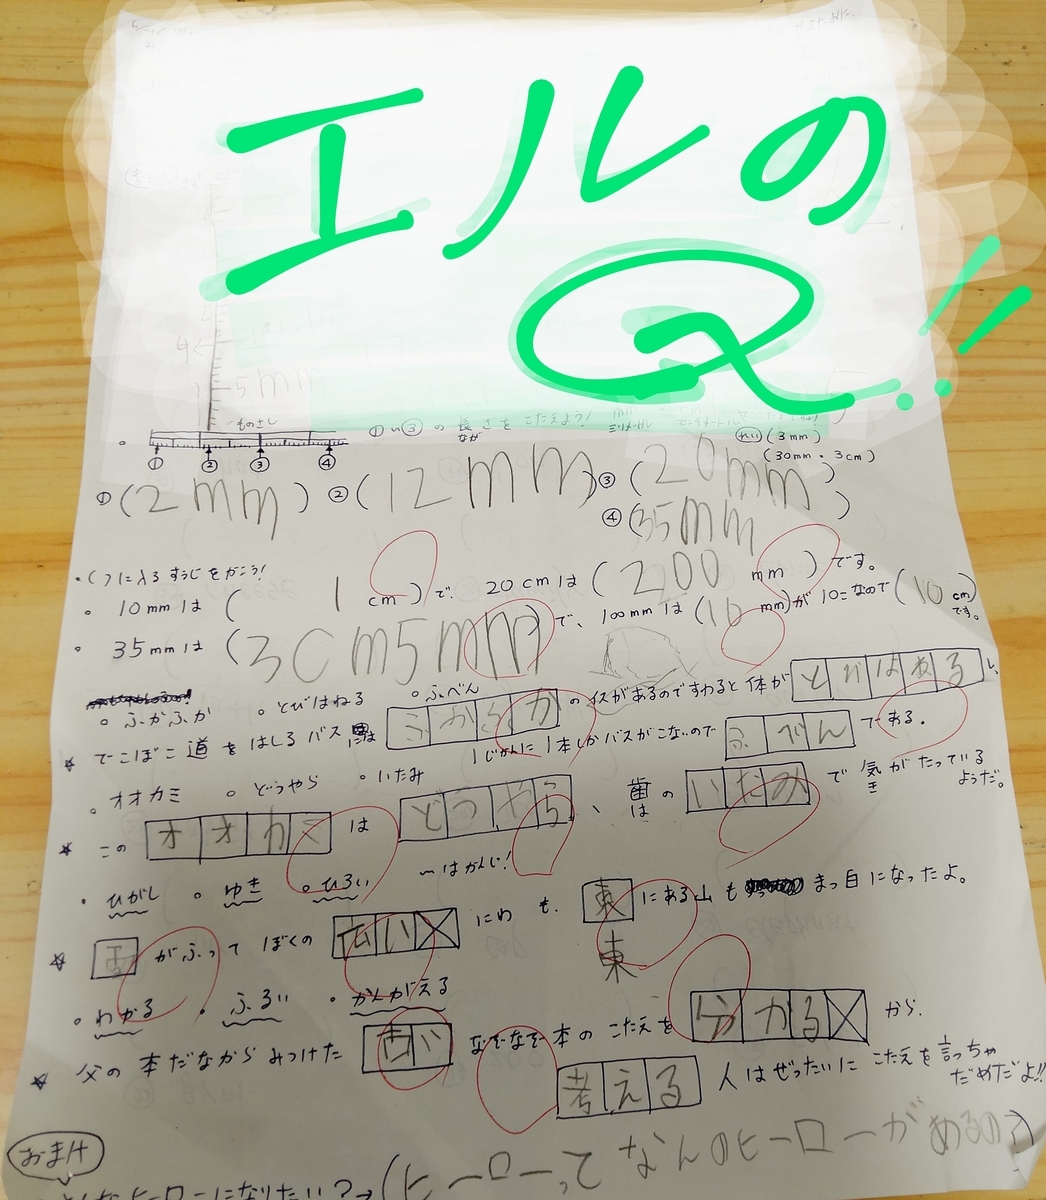 エルの
Q!!
5mm
ものさし
①〜③の長さをこたえよう!
なが
れい(3mm)
(30mm・3cm)
① ② ③ ④
①(2mm) ②(12mm) ③(20mm)
④(35mm)
・( )に入るすうじをかこう!
・10mmは(1cm)で、20cmは(200mm)です。
・35mmは(3cm5mm)で、100mmは(10mm)が10こなので(10cm)です。
・ふかふか ・とびはねる ・ふべん
☆でこぼこ道をはしるバスはふかふかのイスがあるのですわると体がとびはねるし、
1じかんに1本しかバスがこないのでふべんである。
・オオカミ ・どうやら ・いたみ
☆このオオカミはどうやら、歯のいたみで気がたっているようだ。
は き
・ひがし ・ゆき ・ひろい 〜はかんじ!
☆雪がふってぼくの広いにわも、東にある山もまっ白になったよ。
東
・わかる ・ふるい ・かんがえる
☆父の本だなからみつけた古いなぞなぞ本のこたえを分かるから、
考える人はぜったいにこたえを言っちゃだめだよ!!
おまけ
どんなヒーローになりたい?→(ヒーローってなんのヒーローがあるの?)